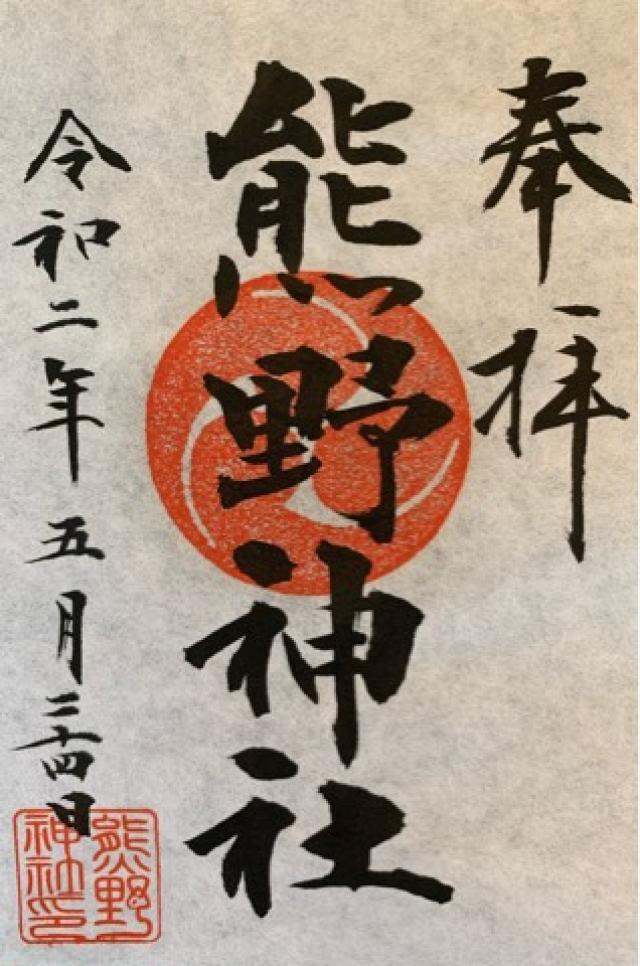 奉拝
熊野神社
令和二年五月二十四日
熊野
神社印